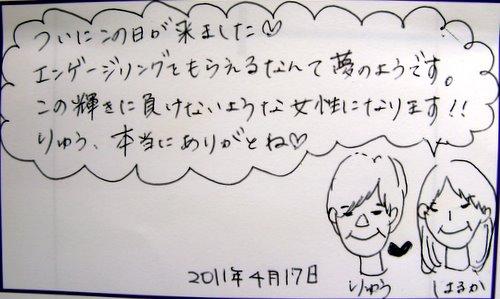 ついにこの日が来ました♡
エンゲージリングをもらえるなんて夢のようです。
この輝きに負けないような女性になります!!
りゅう、本当にありがとね♡
2011年4月17日
りゅう
はるか